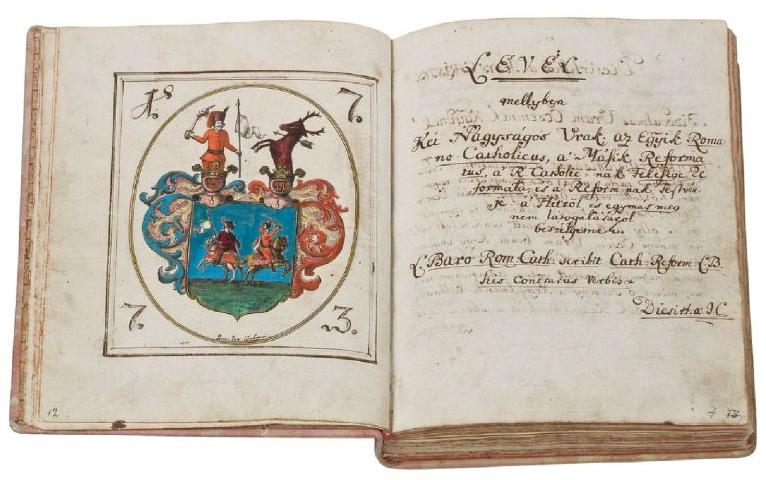 As
7.
7.
3.
12
LEVÉL
mellyben
Két Nagyságos Urak, az Egyik Roma
no Catholicus, a' Másik Reforma
tus, a' R Catholic-nak Felesége Re
formata, és a' Reform-nak Testvér
je: a' Hitről és egymás meg
nem látogatásáról
beszélgetnek.
Baro Rom. Cath. scribit Cath. Reform. L.B.
his contrarus Verbis